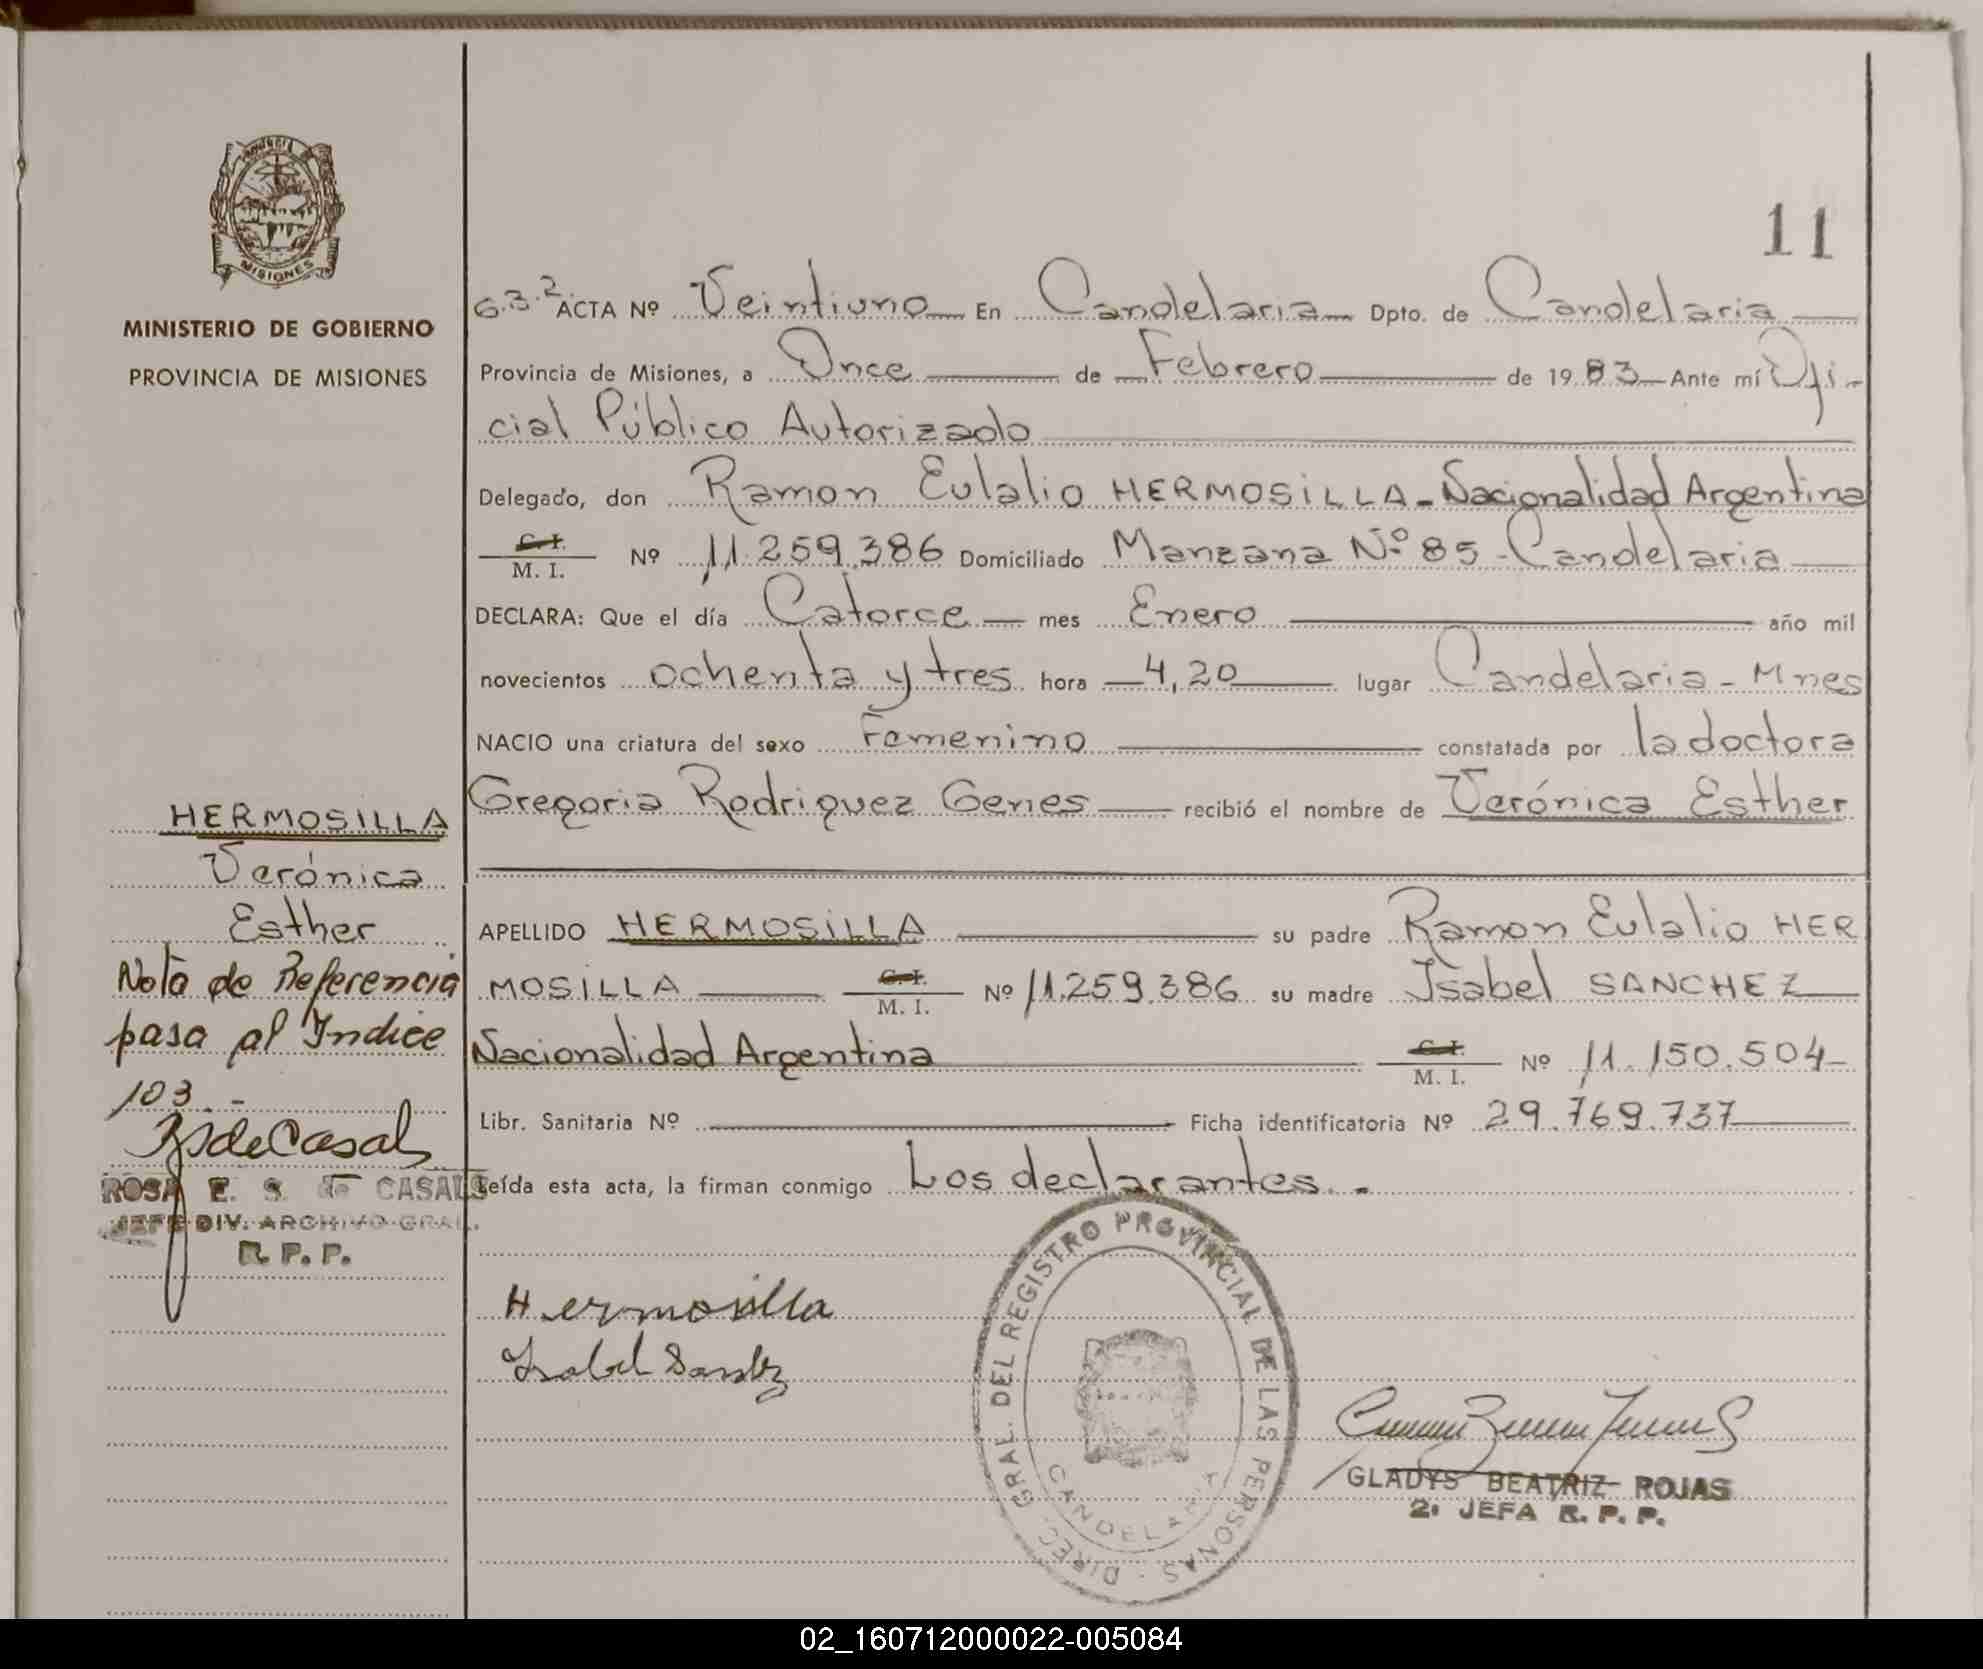 11
MISIONES
MINISTERIO DE GOBIERNO
PROVINCIA DE MISIONES
G.3.2. ACTA Nº Veintiuno En Candelaria Dpto. de Candelaria
Provincia de Misiones, a Once de Febrero de 1983 Ante mí Ofi-
cial Público Autorizado
Delegado, don Ramon Eulalio HERMOSILLA - Nacionalidad Argentina
C. I.
M. I. Nº 11.259.386 Domiciliado Manzana Nº 85 - Candelaria
DECLARA: Que el día Catorce mes Enero año mil
novecientos ochenta y tres hora 4,20 lugar Candelaria - Mnes
NACIO una criatura del sexo Femenino constatada por la doctora
Gregoria Rodriquez Genes recibió el nombre de Verónica Esther
APELLIDO HERMOSILLA su padre Ramon Eulalio HER
MOSILLA C. I. M. I. Nº 11.259.386 su madre Isabel SANCHEZ
Nacionalidad Argentina C. I. M. I. Nº 11.150.504-
Libr. Sanitaria Nº Ficha identificatoria Nº 29.769.737
Leída esta acta, la firman conmigo Los declarantes. -
HERMOSILLA
Verónica
Esther
Nota de Referencia
pasa al Indice
103.-
R S de Casals
ROSA E. S. de CASALS
JEFE DIV. ARCHIVO GRAL.
R. P. P.
Hermosilla
Isabel Sanchez
DIREC. GRAL. DEL REGISTRO PROVINCIAL DE LAS PERSONAS
CANDELARIA
GLADYS BEATRIZ ROJAS
2: JEFA R. P. P.
02_160712000022-005084